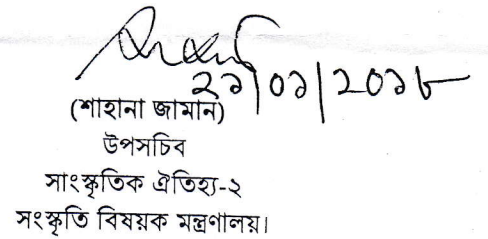 ২১/০১/২০১৮
(শাহানা জামান)
উপসচিব
সাংস্কৃতিক ঐতিহ্য-২
সংস্কৃতি বিষয়ক মন্ত্রণালয়।